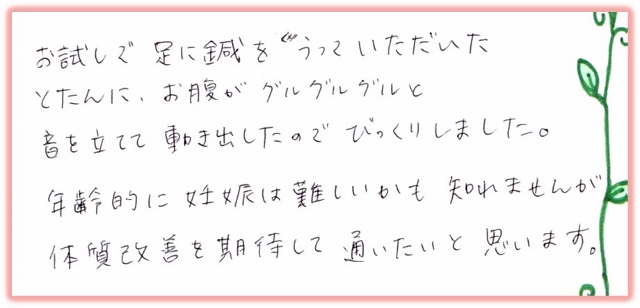 お試しで 足に鍼を うっていただいた
とたんに、お腹が グルグルグルと
音を立てて 動き出したので びっくりしました。
年齢的に 妊娠は難しいかも 知れませんが
体質改善を期待して 通いたいと 思います。